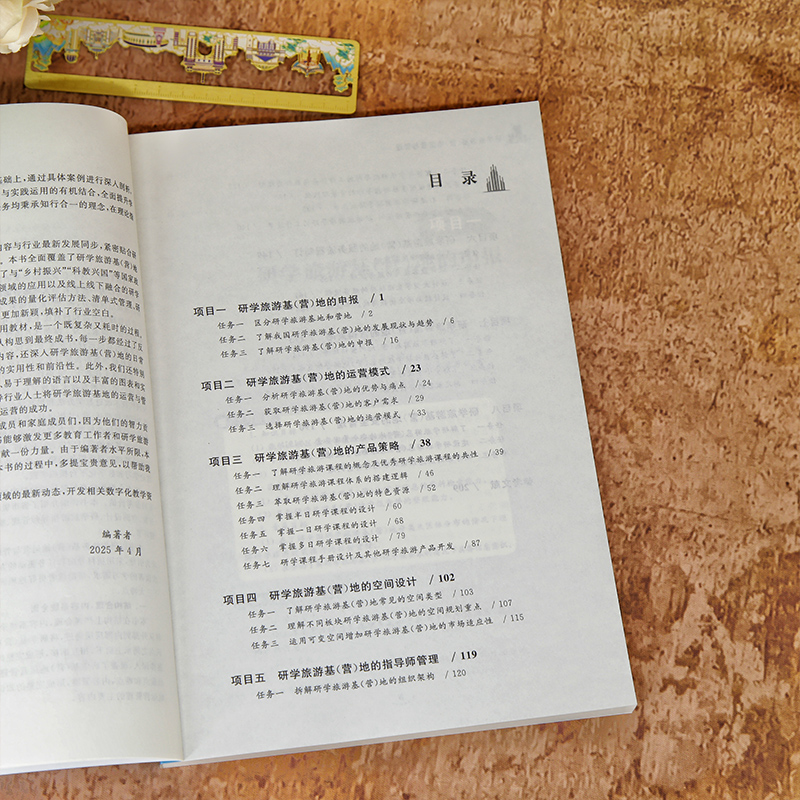 基础上，通过具体案例进行深入剖析，
与实践运用的有机结合，全面提升学
务均秉承知行合一的理念，在理论部
内容与行业最新发展同步，紧密贴合研
。本书全面覆盖了研学旅游基(营)地
了与“乡村振兴”“科教兴国”等国家战
领域的应用以及线上线下融合的研学
成果的量化评估方法、清单式管理、研
更加新颖，填补了行业空白。
用教材，是一个既复杂又耗时的过程。
从构思到最终成书，每一步都经过了反
内容，还深入研学旅游基(营)地的日常
的实用性和前沿性。此外，我们还特别
、易于理解的语言以及丰富的图表和实
行业人士将研学旅游基地的运营与管
运营的成功。
成员和家庭成员们，因为他们的智力贡
能够激发更多教育工作者和研学旅游
献一份力量。由于编著者水平所限，本
本书的过程中，多提宝贵意见，以帮助我
领域的最新动态，开发相关数字化教学资
编著者
2025年4月
目 录
项目一 研学旅游基(营)地的申报 / 1
任务一 区分研学旅游基地和营地 / 2
任务二 了解我国研学旅游基(营)地的发展现状与趋势 / 6
任务三 了解研学旅游基(营)地的申报 / 16
项目二 研学旅游基(营)地的运营模式 / 23
任务一 分析研学旅游基(营)地的优势与痛点 / 24
任务二 获取研学旅游基(营)地的客户需求 / 29
任务三 选择研学旅游基(营)地的运营模式 / 33
项目三 研学旅游基(营)地的产品策略 / 38
任务一 了解研学旅游课程的概念及优秀研学旅游课程的共性 / 39
任务二 理解研学旅游课程体系的搭建逻辑 / 46
任务三 萃取研学旅游基(营)地的特色资源 / 52
任务四 掌握半日研学课程的设计 / 60
任务五 掌握一日研学课程的设计 / 68
任务六 掌握多日研学课程的设计 / 79
任务七 研学课程手册设计及其他研学旅游产品开发 / 87
项目四 研学旅游基(营)地的空间设计 / 102
任务一 了解研学旅游基(营)地常见的空间类型 / 103
任务二 理解不同板块研学旅游基(营)地的空间规划重点 / 107
任务三 运用可变空间增加研学旅游基(营)地的市场适应性 / 115
项目五 研学旅游基(营)地的指导师管理 / 119
任务一 拆解研学旅游基(营)地的组织架构 / 120